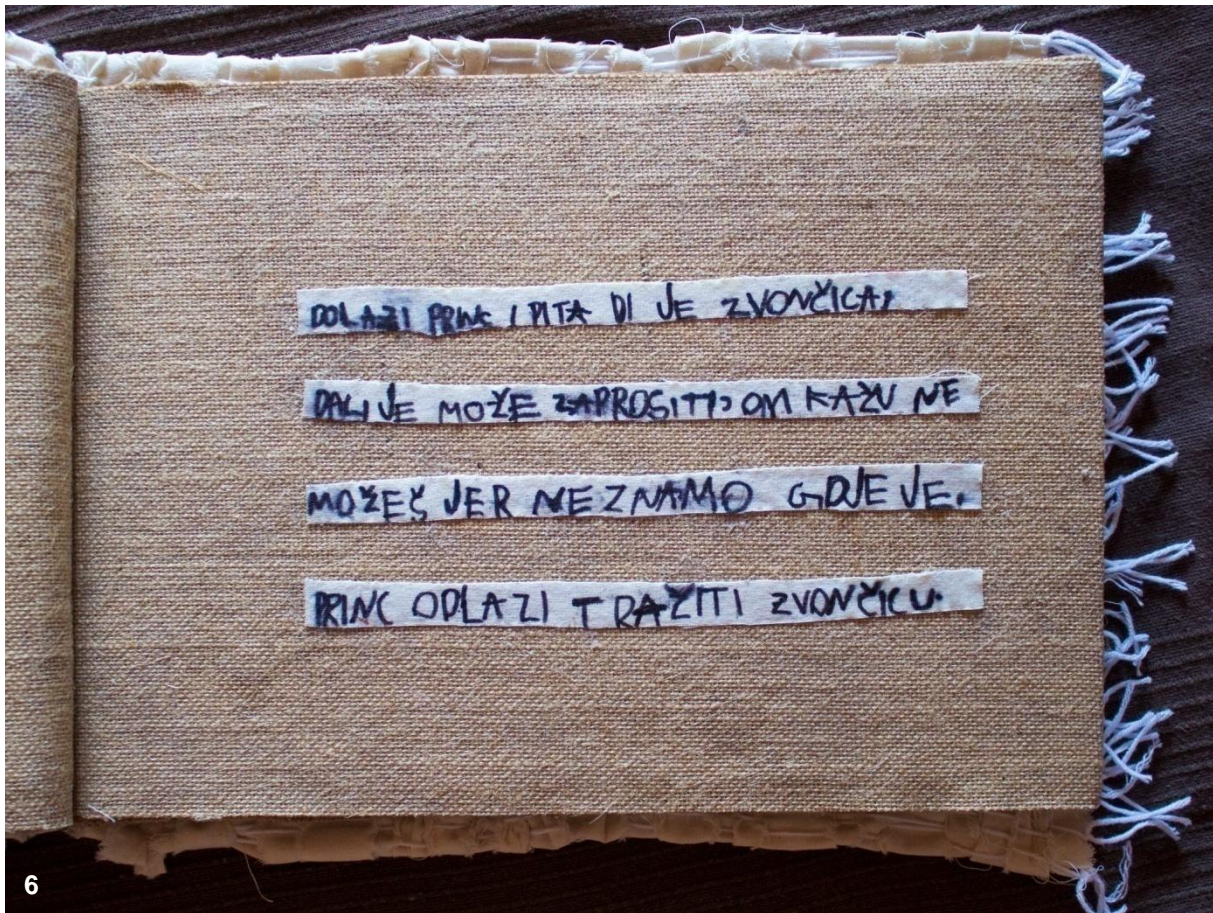 DOLAZI PRINC I PITA DI JE ZVONČICA,
DALI JE MOŽE ZAPROSITI, ONI KAŽU NE
MOŽEŠ JER NE ZNAMO GDJE JE.
PRINC ODLAZI TRAŽITI ZVONČICU.
6